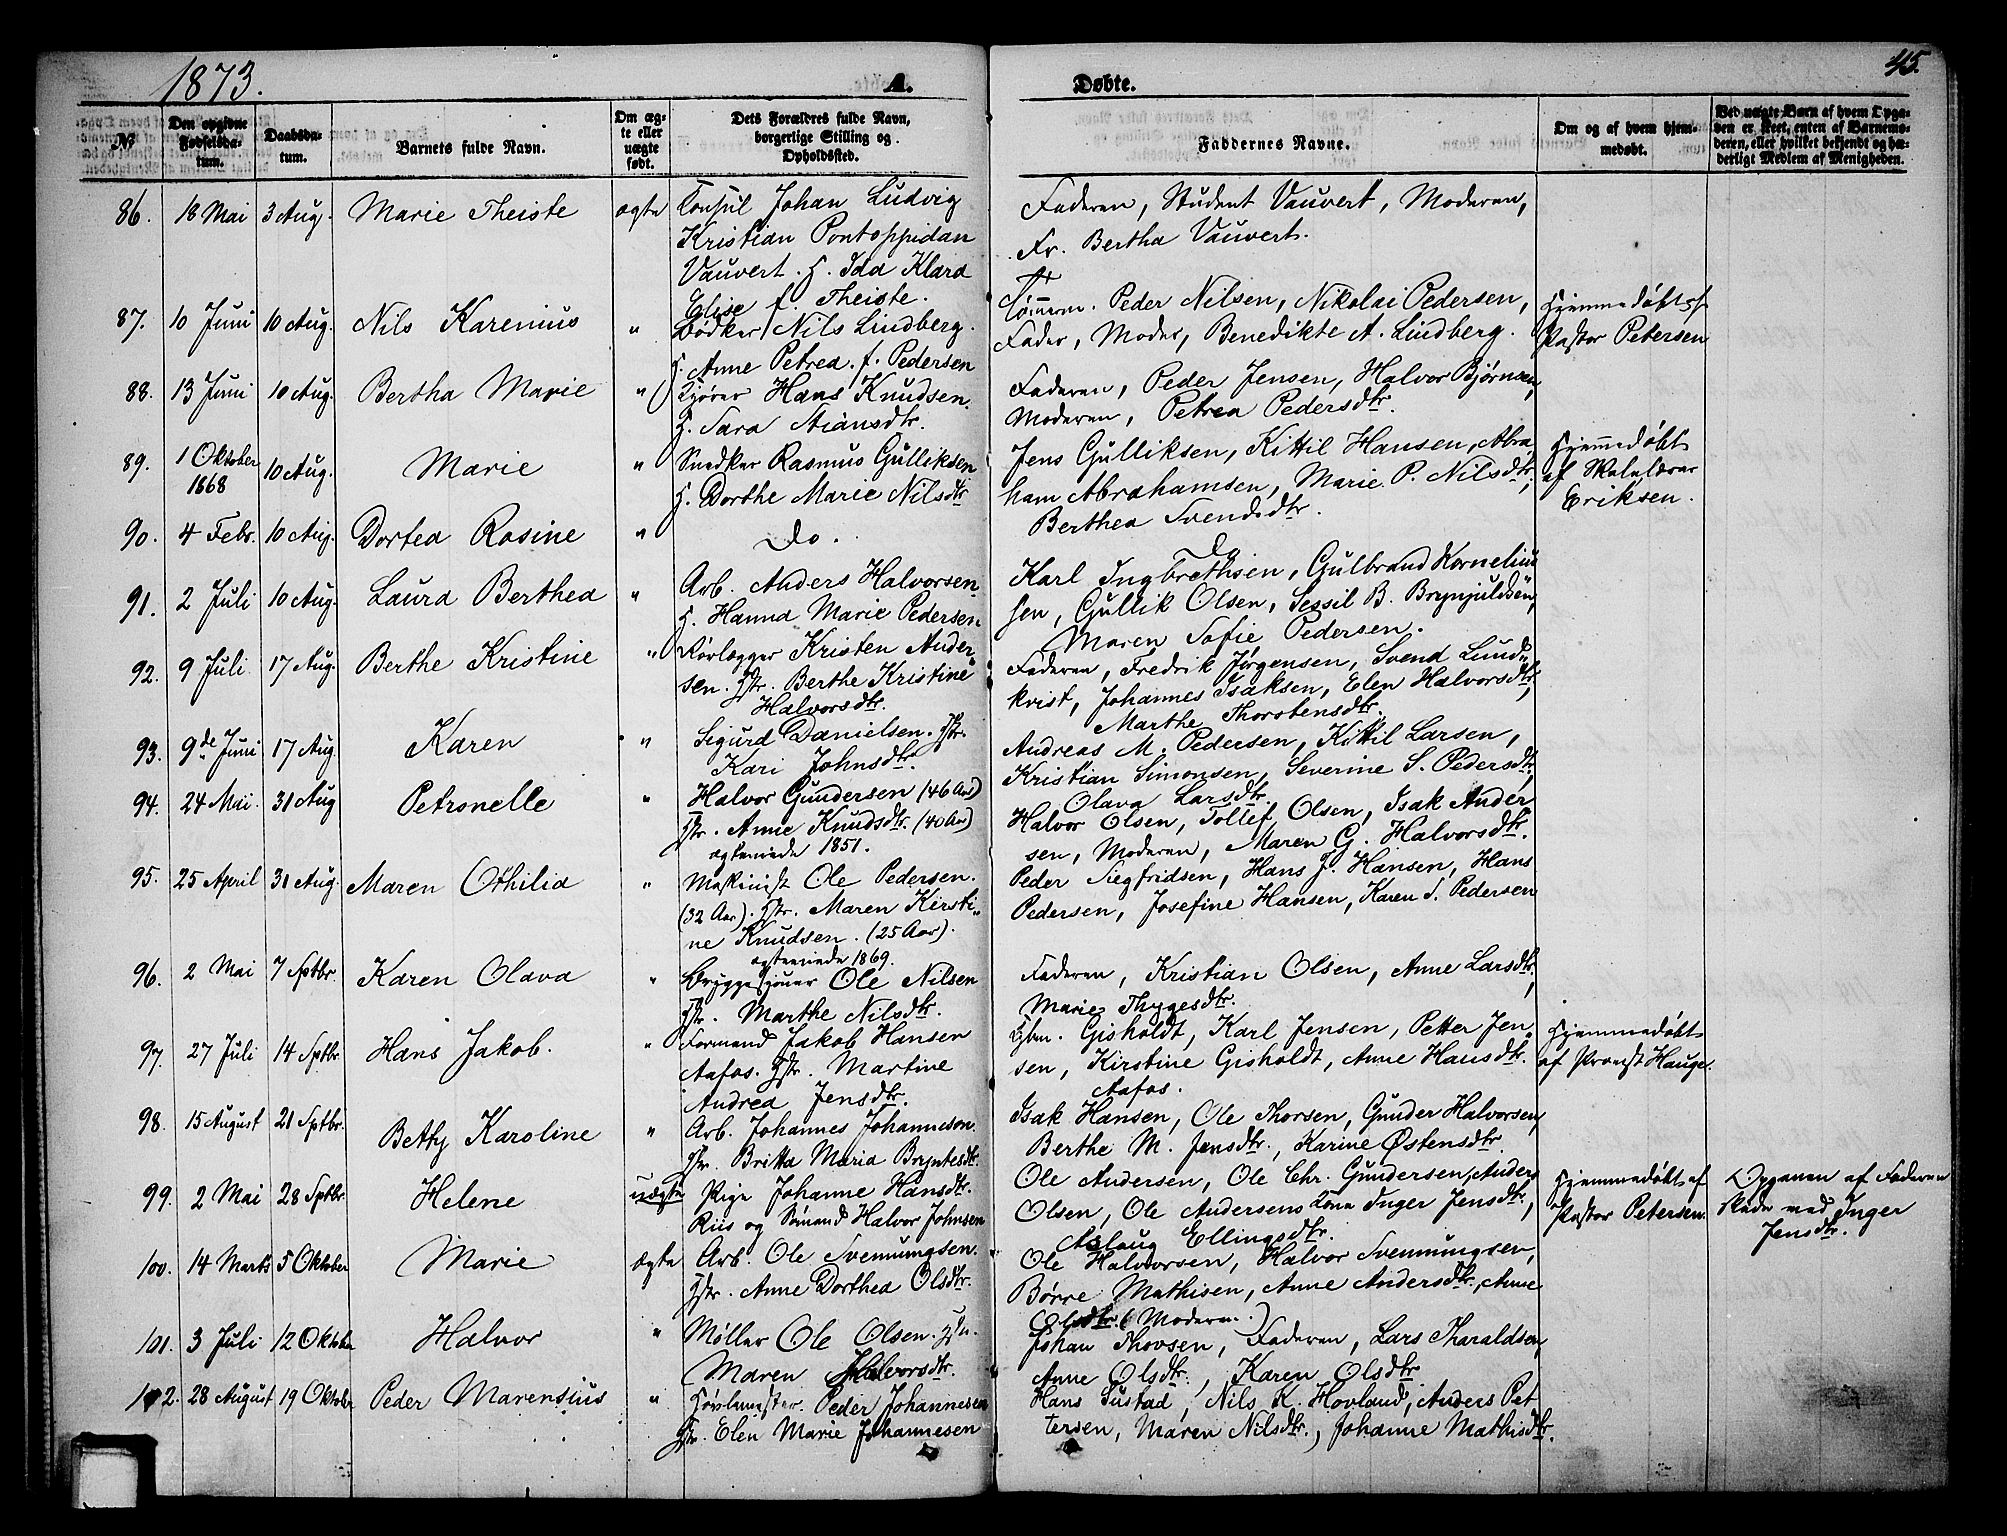 1873. A. Døbte. 45.
№
Den opgivne Fødselsdatum.
Daabsdatum.
Barnets fulde Navn.
Om ægte eller uægte født.
Dets Forældres fulde Navn, borgerlige Stilling og Opholdssted.
Faddernes Navne.
Om og af hvem hjemmedøbt.
Ved uægte Barn af hvem Opgaven er skeet, enten af Barnemoderen, eller hvilket bekjendt og hæderligt Medlem af Menigheden.
86. 18 Mai 3 Aug. Marie Theiste ægte Konsul Johan Ludvig
Kristian Pontoppidan
Vauvert. H. Ida Klara
Elise f. Theiste.
Faderen, Student Vauvert, Moderen,
Fr. Bertha Vauvert.
87. 10 Juni 10 Aug. Nils Karenius " Bødker Nils Lindberg.
H. Anne Petrea f. Pedersen
Tømerm. Peder Nilsen, Nikolai Pedersen,
Fader, Moder, Benedikte A. Lindberg.
Hjemmedøbt af
Pastor Petersen
88. 13 Juni 10 Aug. Bertha Marie " Kjører Hans Knudsen.
H. Sara Aiansdtr.
Faderen, Peder Jensen, Halvor Bjørnsen,
Moderen, Petrea Pedersdtr.
89. 1 Oktober 1868 10 Aug. Marie " Snedker Rasmus Gulliksen
H. Dorthe Marie Nilsdtr
Jens Gulliksen, Kittil Hansen, Abra
ham Abrahamsen, Marie P. Nilsdtr,
Berthea Svendsdtr.
Hjemedøbt
af Skolelærer
Eriksen.
90. 4 Febr. 10 Aug. Dortea Rosine " Do.
Do
91. 2 Juli 10 Aug. Laura Berthea " Arb. Anders Halvorsen
H. Hanna Marie Pedersen
Karl Ingbrethsen, Gulbrand Kornelius
sen, Gullik Olsen, Sessil B. Brynjuldsen,
Maren Sofie Pedersen.
92. 9 Juli 17 Aug. Berthe Kristine " Rørlægger Kristen Ander-
sen. Hstr. Berthe Kristine
Halvorsdtr.
Faderen, Fredrik Jørgensen, Svend Lund-
kvist, Johannes Isaksen, Elen Halvorsdtr,
Marthe Thorstensdtr.
93. 9de Juni 17 Aug Karen " Sigurd Danielsen. Hstr.
Kari Johnsdtr.
Andreas M. Pedersen, Kittil Larsen,
Kristian Simonsen, Severine S. Pedersdtr,
Olava Larsdtr.
94. 24 Mai. 31 Aug Petronelle " Halvor Gundersen (46 Aar)
Hstr. Anne Knudsdtr. (40 Aar)
ægteviede 1851.
Halvor Olsen, Tollef Olsen, Isak Ander
sen, Moderen, Maren G. Halvorsdtr.
95. 25 April 31 Aug. Maren Othilia " Maskinist Ole Pedersen.
(32 Aar). Hstr. Maren Kirsti-
ne Knudsen. (25 Aar).
ægteviede 1869.
Peder Siegfridsen, Hans J. Hansen, Hans
Pedersen, Josefine Hansen, Karen S. Pedersen
96. 2 Mai 7 Sptbr. Karen Olava " Bryggesjouer Ole Nilsen
Hstr. Marthe Nilsdtr.
Faderen, Kristian Olsen, Anne Larsdtr,
Marie Thygesdtr.
97. 27 Juli 14 Sptbr Hans Jakob. " Formand Jakob Hansen
Aafos. Hstr. Martine
Andrea Jensdtr.
Gbm. Gisholdt, Karl Jensen, Petter Jen-
sen, Kirstine Gisholdt, Anne Hansdtr.
Aafos.
Hjemmedøbt
af Provst Hauge.
98. 15 August 21 Sptbr. Bethy Karoline " Arb. Johannes Johanneson.
Hstr. Britta Maria Bryntesdtr.
Isak Hansen, Ole Thorsen, Gunder Halvorsen,
Berthe M. Jensdtr., Karine Østensdtr.
99. 2 Mai 28 Sptbr. Helene uægte Pige Johanne Hansdtr.
Riis og Sømand Halvor Johnsen
Ole Andersen, Ole Chr. Gundersen, Anders
Olsen, Ole Andersens Kone Inger Jensdtr,
Aslaug Ellingsdtr.
Hjemmedøbt af
Pastor Petersen.
Opgaven af Faderen
skede ved Inger
Jensdtr.
100. 14 Marts 5 Oktober Marie ægte Arb. Ole Svenningsen.
Hstr. Anne Dorthea Olsdtr.
Ole Halvorsen, Halvor Svenningsen,
Børre Mathisen, Anne Andersdtr, Anne
Olsdtr. (Moderen.)
101. 3 Juli 12 Oktober Halvor " Møller Ole Olsen.
Maren Halvorsdtr.
Johan Thovsen, Faderen, Lars Tharaldsen,
Anne Olsdtr., Karen Olsdtr
102. 28 August 19 Oktober Peder Marensius " Høvlemester Peder Johannesen
Hstr. Elen Marie Johannesen
Hans Sustad, Nils K. Hovland, Anders Pet
tersen, Maren Nilsdtr., Johanne Mathisdtr.